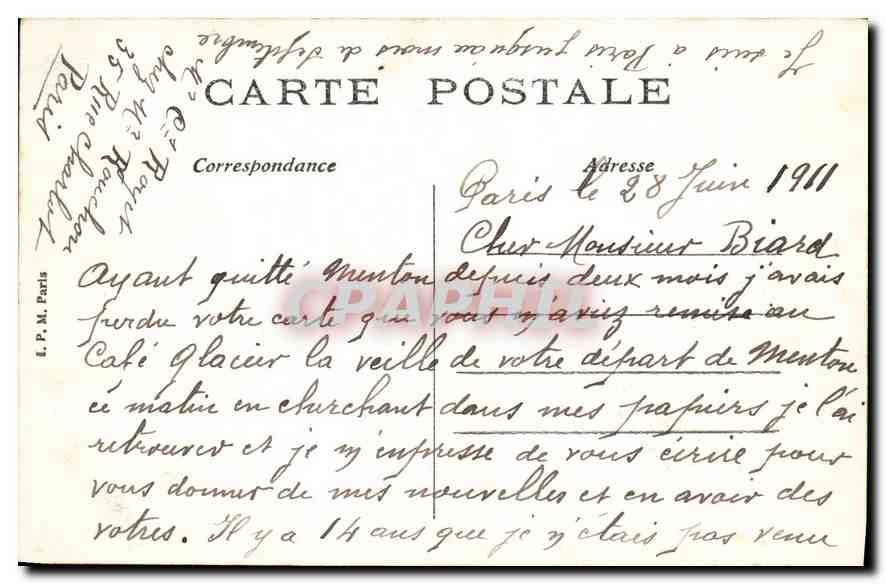 Je suis à Paris jusqu'au mois de Septembre
Mr Cts Royet
chez Mr Rouchon
35 Rue Charlot
Paris
CARTE POSTALE
Correspondance
Adresse
Paris le 28 Juin 1911
Cher Monsieur Biard
Ayant quitté Menton depuis deux mois j'avais
perdu votre carte que vous m'aviez remise au
Café Glacier la veille de votre départ de Menton
ce matin en cherchant dans mes papiers je l'ai
retrouver et je m'empresse de vous écrire pour
vous donner de mes nouvelles et en avoir des
votres. Il y a 14 ans que je n'étais pas venu
E. P. M. Paris
CPAPHIL